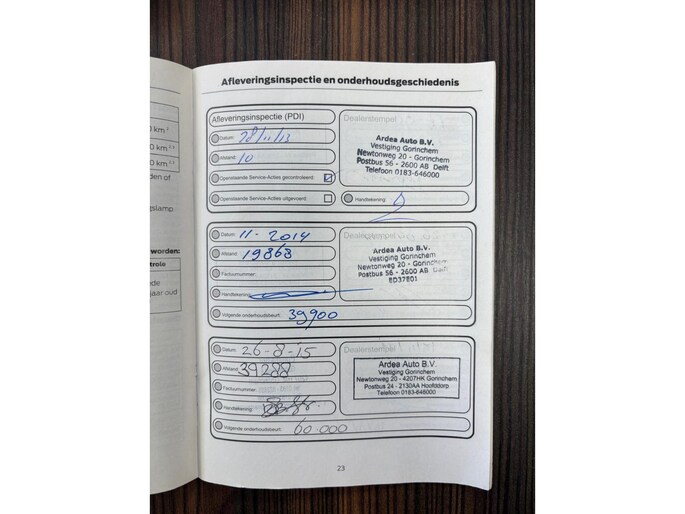 Afleveringsinspectie en onderhoudsgeschiedenis
0 km 2
0 km 3
0 km 2,4
den of
gslamp
worden:
trole
ede
jaar oud
Afleveringsinspectie (PDI)
Datum: 28/11/13
Afstand: 10
Openstaande Service-Acties gecontroleerd
Openstaande Service-Acties uitgevoerd
Dealerstempel
Ardea Auto B.V.
Vestiging Gorinchem
Newtonweg 20 - Gorinchem
Postbus 56 - 2600 AB Delft
Telefoon 0183-646000
Handtekening
Datum: 11-2014
Afstand: 19868
Factuurnummer:
Handtekening:
Volgende onderhoudsbeurt: 39900
Dealerstempel
Ardea Auto B.V.
Vestiging Gorinchem
Newtonweg 20 - Gorinchem
Postbus 56 - 2600 AB Delft
BD37801
Datum: 26-8-15
Afstand: 39288
Factuurnummer:
Handtekening:
Volgende onderhoudsbeurt: 60.000
Dealerstempel
Ardea Auto B.V.
Vestiging Gorinchem
Newtonweg 20 - 4207HK Gorinchem
Postbus 24 - 2130AA Hoofddorp
Telefoon 0183-646000
23